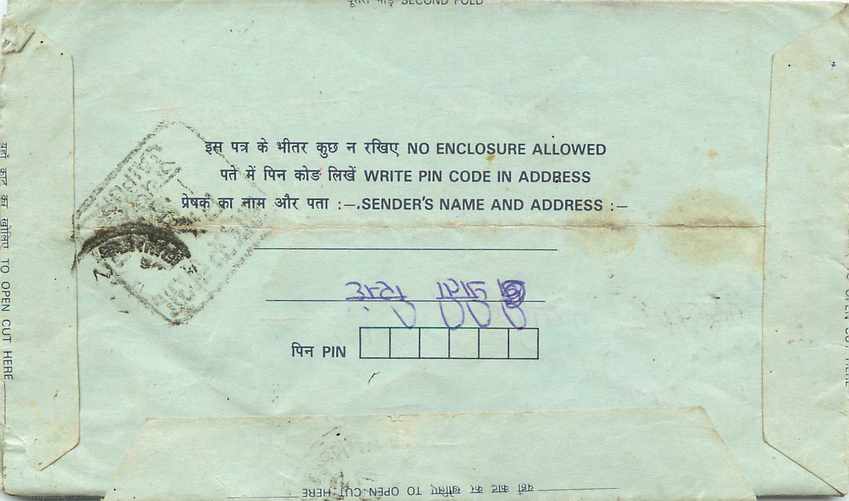 दूसरा मोड़ SECOND FOLD
इस पत्र के भीतर कुछ न रखिए NO ENCLOSURE ALLOWED
पते में पिन कोड लिखें WRITE PIN CODE IN ADDRESS
प्रेषक का नाम और पता :—.SENDER'S NAME AND ADDRESS :—
पिन PIN
यहाँ काट कर खोलिए TO OPEN CUT HERE
TO OPEN CUT HERE
यहाँ काट कर खोलिए TO OPEN CUT HERE